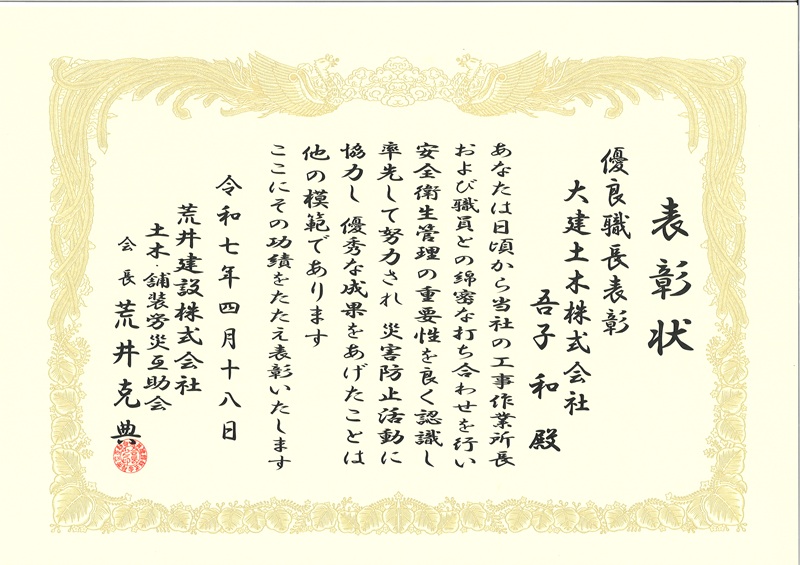 表彰状
優良職長表彰
大建土木株式会社
吾子 和 殿
あなたは日頃から当社の工事作業所長
および職員との綿密な打ち合わせを行い
安全衛生管理の重要性を良く認識し
率先して努力され 災害防止活動に
協力し 優秀な成果をあげたことは
他の模範であります
ここにその功績をたたえ表彰いたします
令和七年四月十八日
荒井建設株式会社
土木・舗装労災互助会
会長 荒井克典